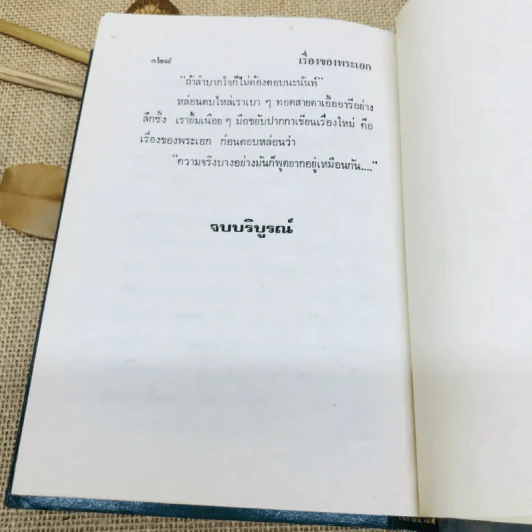 ๑๒๘ เรื่องของพระเอก
"ถ้าลำบากใจก็ไม่ต้องตอบนะนันท์"
หล่อนตบไหล่เราเบา ๆ ทอดสายตาเอื้ออารีอย่าง
ลึกซึ้ง เรายิ้มเนือย ๆ มือขยับปากกาเขียนเรื่องใหม่ คือ
เรื่องของพระเอก ก่อนตอบหล่อนว่า
"ความจริงบางอย่างมันก็พูดยากอยู่เหมือนกัน...."
จบบริบูรณ์